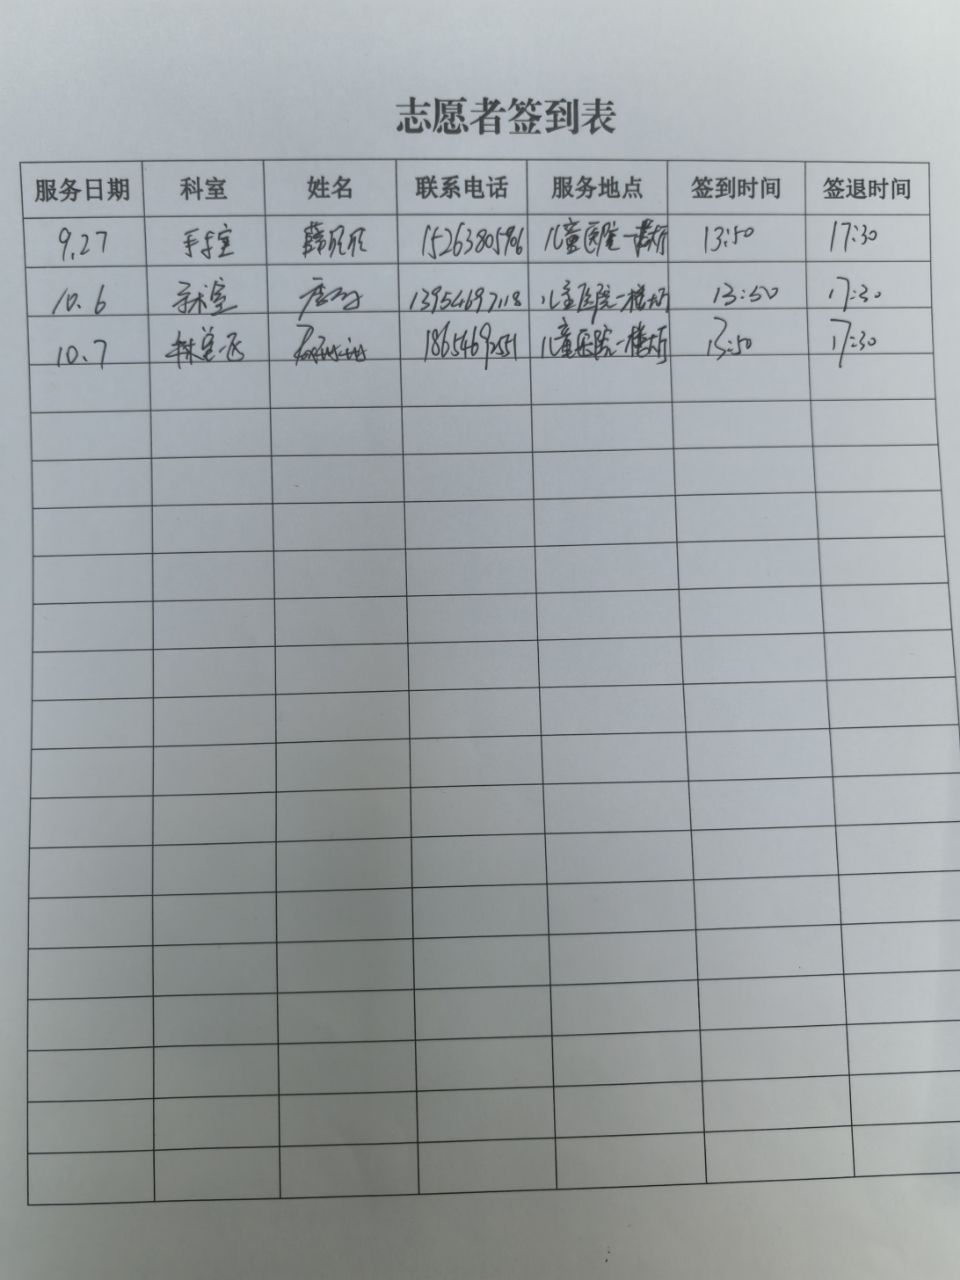 志愿者签到表
服务日期 科室 姓名 联系电话 服务地点 签到时间 签退时间
9.27 手术室 薛欣欣 15263805906 儿童医院一楼大厅 13:50 17:30
10.6 手术室 13954697118 儿童医院一楼大厅 13:50 17:30
10.7 儿童医院一楼大厅 13:50 17:30